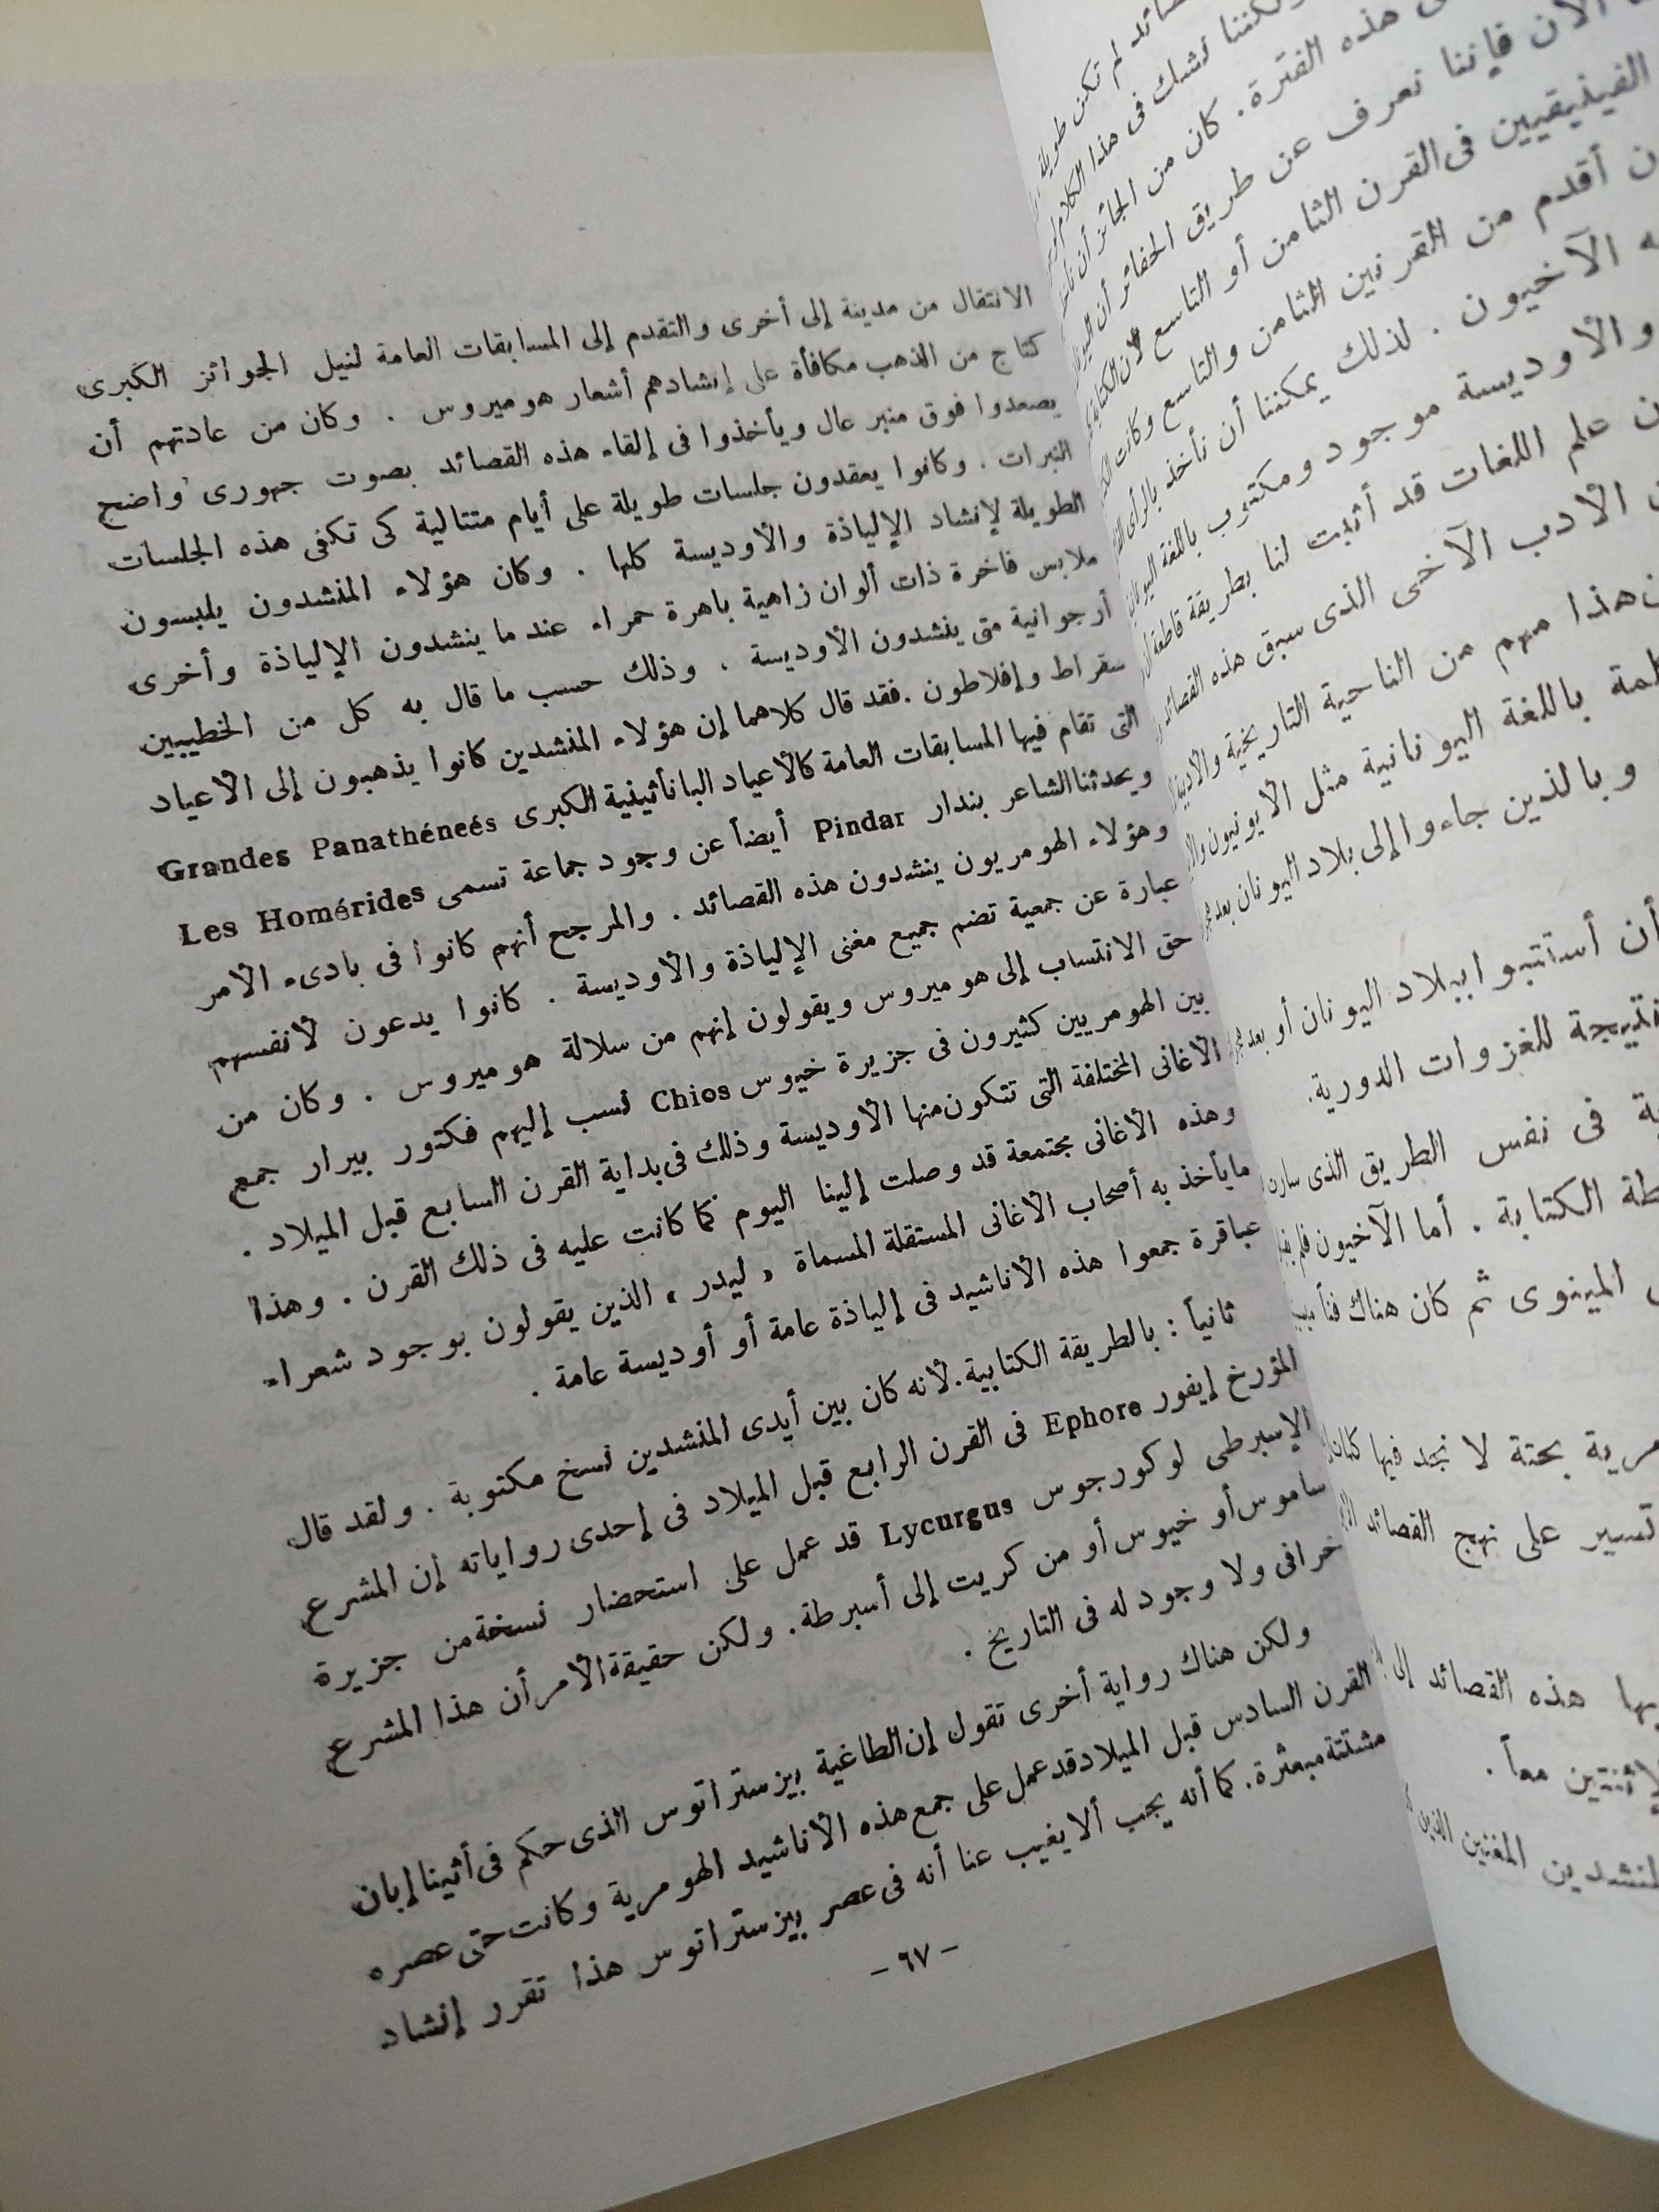 لم تكن طويلة
ولكننا نشك فى هذا الكلام
هذه الفترة . كان من الجائز أن
الآن فإننا نعرف عن طريق الحفائر أن
الفينيقيين فى القرن الثامن أو التاسع لأن الكتابة
أقدم من القرنين الثامن والتاسع وكانت
الآخيون . لذلك يمكننا أن نأخذ بالرأى
والأوديسة موجود ومكتوب باللغة
علم اللغات قد أثبت لنا بطريقة قاطعة
الأدب الآخى الذى سبق هذه القصائد
هذا مهم من الناحية التاريخية والأدبية
باللغة اليونانية مثل الأيونيون
وبالذين جاءوا إلى بلاد اليونان بعد
أن أستتبوا ببلاد اليونان أو بعد
نتيجة للغزوات الدورية.
فى نفس الطريق الذى
الكتابة . أما الآخيون فلم
المينوى ثم كان هناك فناً
بحتة لا نجد فيها
تسير على نهج القصائد
هذه القصائد إلى
معاً .
المغنين الذين
الانتقال من مدينة إلى أخرى والتقدم إلى المسابقات العامة لنيل الجوائز الكبرى
كتاج من الذهب مكافأة على إنشادهم أشعار هوميروس . وكان من عادتهم أن
يصعدوا فوق منبر عال ويأخذوا فى إلقاء هذه القصائد بصوت جهورى واضح
النبرات . وكانوا يعقدون جلسات طويلة على أيام متتالية كى تكفى هذه الجلسات
الطويلة لإنشاد الإلياذة والأوديسة كلها . وكان هؤلاء المنشدون يلبسون
ملابس فاخرة ذات ألوان زاهية باهرة حمراء عند ما ينشدون الإلياذة وأخرى
أرجوانية متى ينشدون الأوديسة . وذلك حسب ما قال به كل من الخطيبين
سقراط وإفلاطون . فقد قال كلاهما إن هؤلاء المنشدين كانوا يذهبون إلى الأعياد
التى تقام فيها المسابقات العامة كالأعياد الباناثينية الكبرى Grandes Panathéneés
ويحدثنا الشاعر بندار Pindar أيضاً عن وجود جماعة تسمى Les Homérides
وهؤلاء الهومريون ينشدون هذه القصائد . والمرجح أنهم كانوا فى بادىء الأمر
عبارة عن جمعية تضم جميع مغنى الإلياذة والأوديسة . كانوا يدعون لأنفسهم
حق الانتساب إلى هوميروس ويقولون إنهم من سلالة هوميروس . وكان من
بين الهومريين كثيرون فى جزيرة خيوس Chios نسب إليهم فكتور بيرار جمع
الأغانى المختلفة التى تتكون منها الأوديسة وذلك فى بداية القرن السابع قبل الميلاد .
وهذه الأغانى مجتمعة قد وصلت إلينا اليوم كما كانت عليه فى ذلك القرن . وهذا
ما يأخذ به أصحاب الأغانى المستقلة المسماة « ليدر » الذين يقولون بوجود شعراء
عباقرة جمعوا هذه الأناشيد فى إلياذة عامة أو أوديسة عامة .
ثانياً : بالطريقة الكتابية . لأنه كان بين أيدى المنشدين نسخ مكتوبة . ولقد قال
المؤرخ إيفور Ephore فى القرن الرابع قبل الميلاد فى إحدى رواياته إن المشرع
الإسبرطى لوكورجوس Lycurgus قد عمل على استحضار نسخة من جزيرة
ساموس أو خيوس أو من كريت إلى أسبرطة . ولكن حقيقة الأمر أن هذا المشرع
خرافى ولا وجود له فى التاريخ .
ولكن هناك رواية أخرى تقول إن الطاغية بيزستراتوس الذى حكم فى أثينا إبان
القرن السادس قبل الميلاد قد عمل على جمع هذه الأناشيد الهومرية وكانت حتى عصره
مشتتة مبعثرة . كما أنه يجب ألا يغيب عنا أنه فى عصر بيزستراتوس هذا تقرر إنشاد
– ٦٧ –